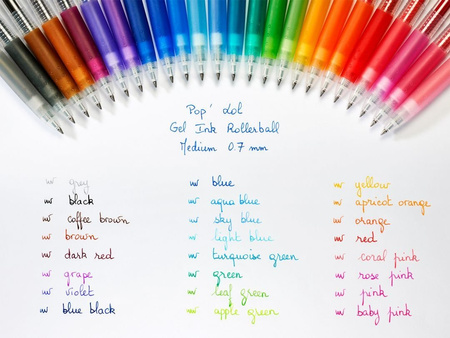 Pop' Lol
Gel Ink Rollerball
Medium 0.7 mm
grey
black
coffee brown
brown
dark red
grape
violet
blue black
blue
aqua blue
sky blue
light blue
turquoise green
green
leaf green
apple green
yellow
apricot orange
orange
red
coral pink
rose pink
pink
baby pink